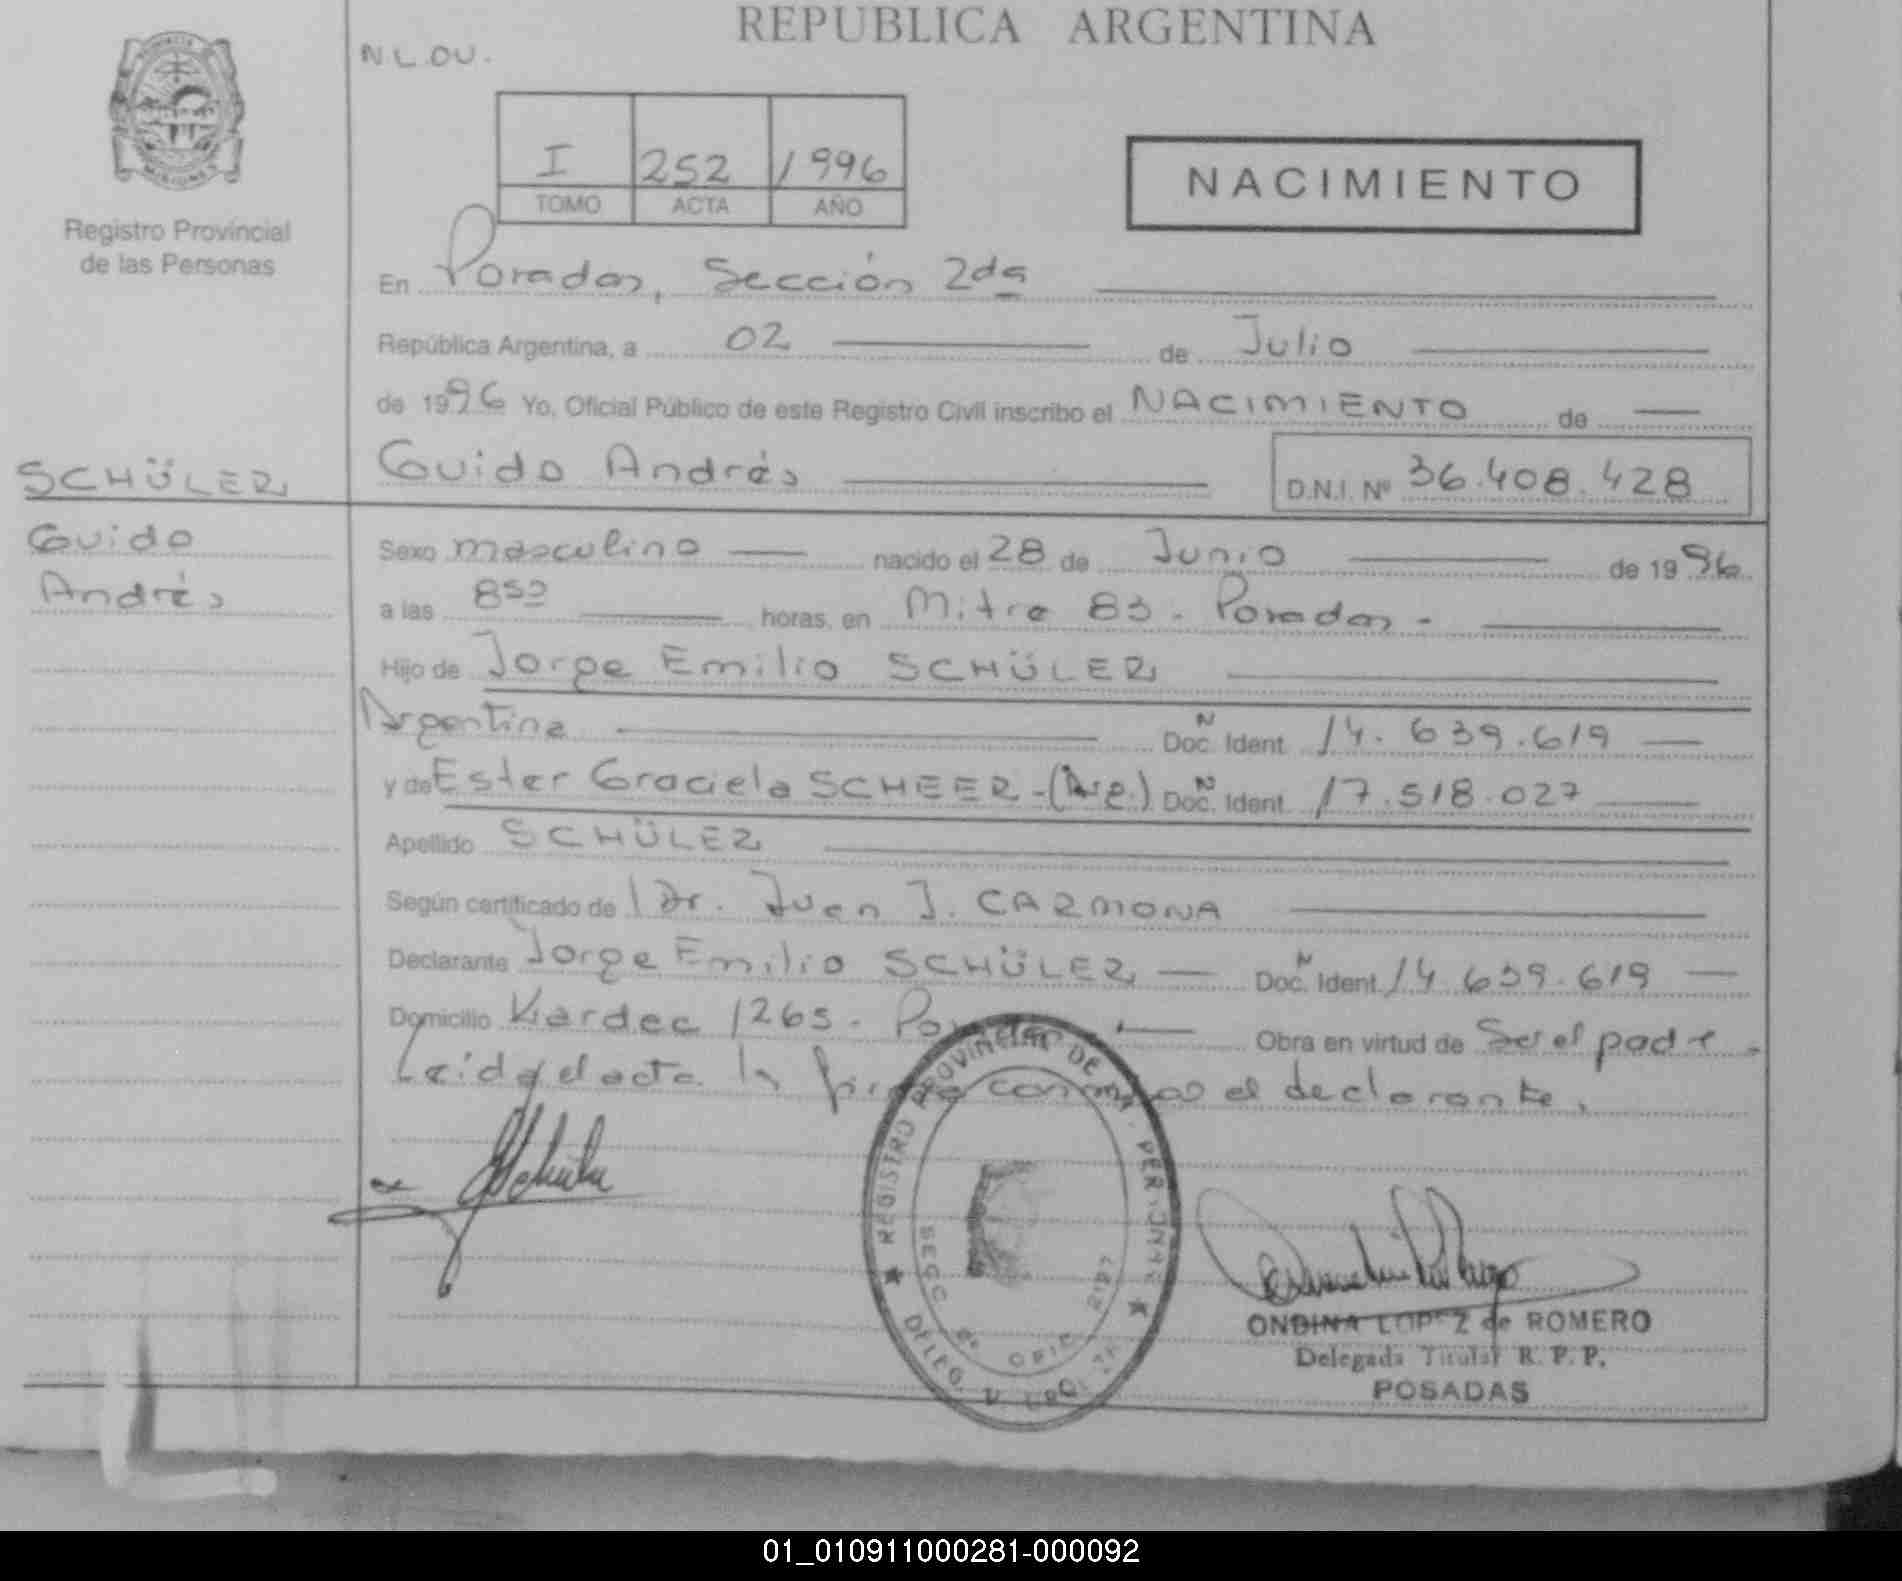 REPUBLICA ARGENTINA
N.L.OU.
MISIONES
Registro Provincial
de las Personas
I 252 1996
TOMO ACTA AÑO
NACIMIENTO
En Posadas, Sección 2da
República Argentina, a 02 de Julio
de 1996 Yo, Oficial Público de este Registro Civil inscribo el NACIMIENTO de
SCHÜLER
Guido Andrés
D.N.I. Nº 36.408.428
Guido
Andrés
Sexo masculino nacido el 28 de Junio de 1996
a las 850 horas, en Mitre 83 - Posadas -
Hijo de Jorge Emilio SCHÜLER
Argentina Doc. N Ident 14.639.619
y de Ester Graciela SCHEER - (Arg.) Doc. N Ident. 17.518.027
Apellido SCHÜLER
Según certificado de l Dr. Juan J. CARMONA
Declarante Jorge Emilio SCHÜLER Doc. N Ident. 14.639.619
Domicilio Kardec 1265 - Posadas - Obra en virtud de Ser el padre.
Leida el acta la firma conmigo el declarante.
REGISTRO PROVINCIAL DE
SECC 2ª OFIC
DELEG.
ONDINA LOPEZ de ROMERO
Delegada Titular R. P. P.
POSADAS
01_010911000281-000092